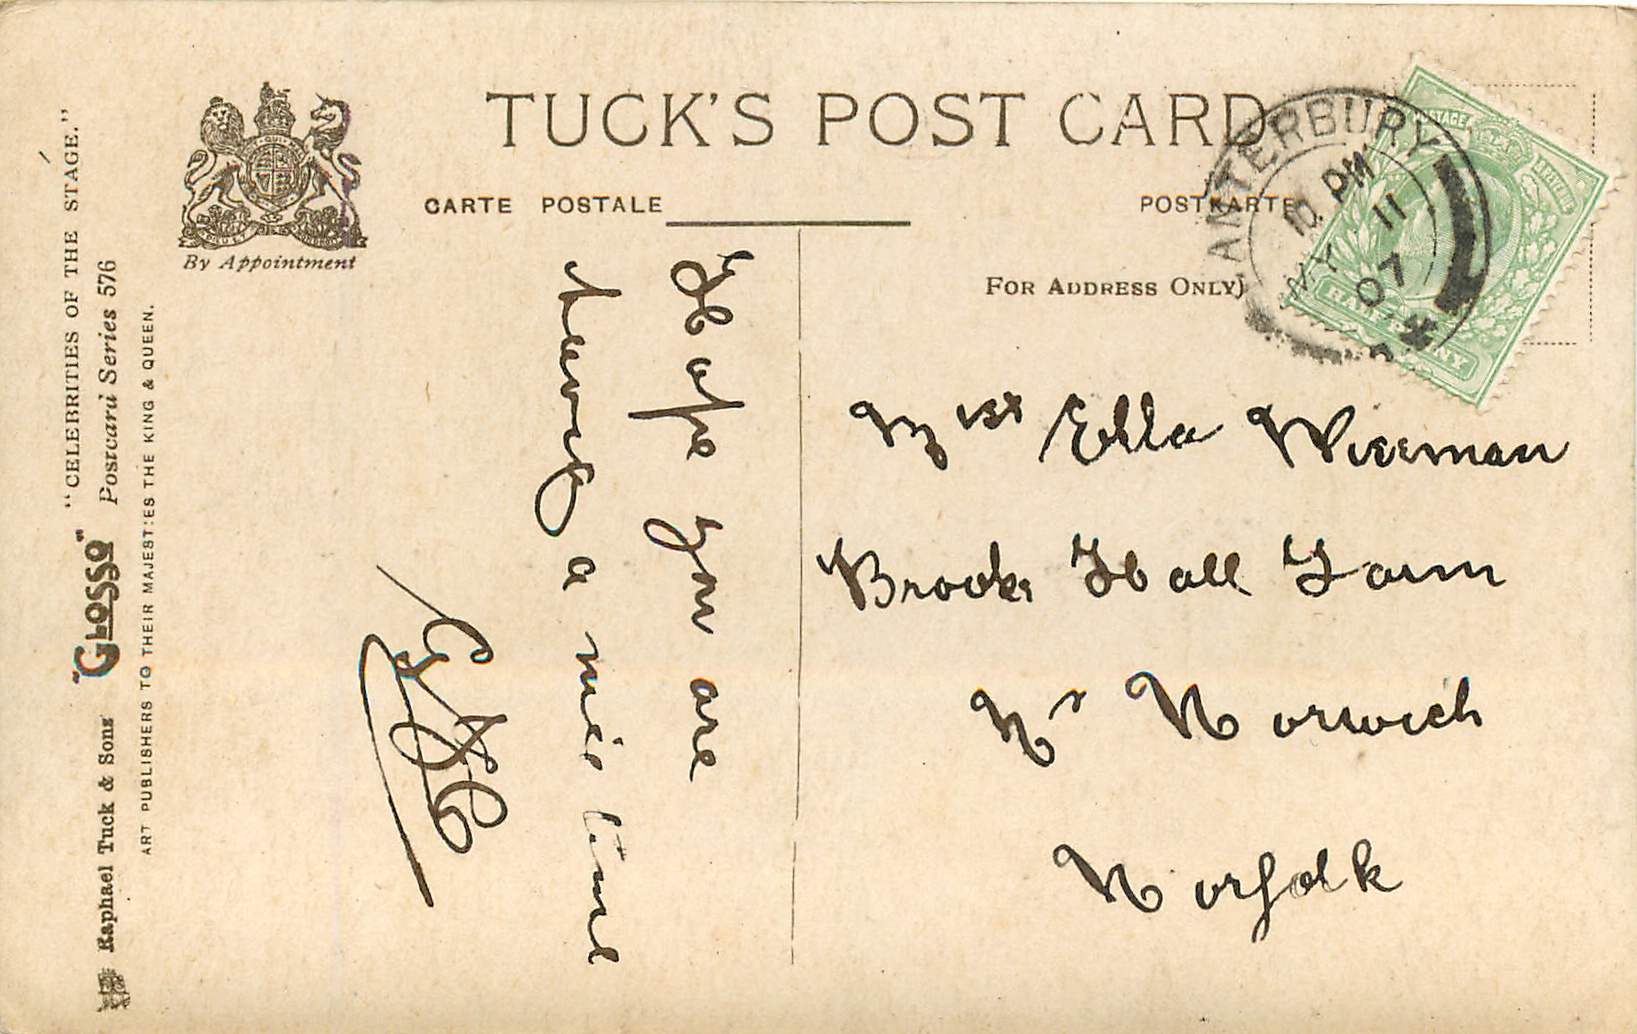 TUCK'S POST CARD
CARTE POSTALE
POSTKARTE
(FOR ADDRESS ONLY)
By Appointment
"CELEBRITIES OF THE STAGE."
Raphael Tuck & Sons' "GLOSSO" Postcard Series 576
ART PUBLISHERS TO THEIR MAJESTIES THE KING & QUEEN.
CANTERBURY
10 PM
MY 11
07
POSTAGE
HALFPENNY
Hope you are
having a nice time
Ella
Brooke Hall Farm
Nr Norwich
Norfolk